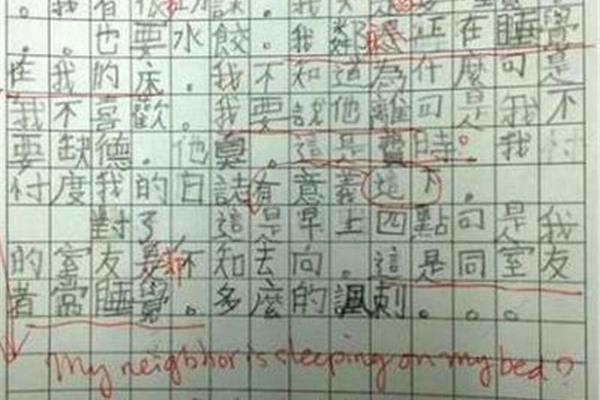 。我有很 話。我
。也要水餃。我鄰居正在睡覺
在我的床。我不知道為什麼可是
我不喜歡。我要說他離可是我不
要缺德。他臭。這是費時。我忖
忖度我的日誌有意義地下。
對了，這是早上四點可是我
的室友是不知去向。這是同室友
者常睡覺。多麼的諷刺。。。
My neighbor is sleeping on my bed?